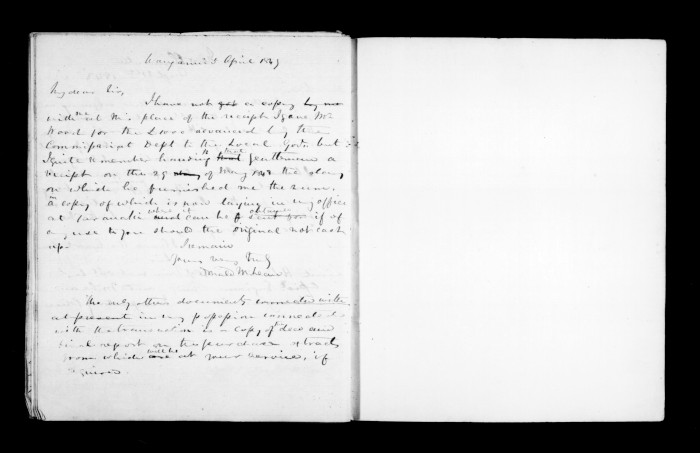 Wanganui 3 April 1849
My dear Sir,
I have not yet a copy by me
with me at this place of the receipt I gave Mr
Wood for the £1000 advanced by the
Commissariat Dept to the Local Govt but
I quite remember handing to that gentleman a
receipt on the 29 of May 1848 the day
on which he furnished me the sum,
a copy of which is now laying in my office
at Taranaki where it can be if of
any use to you should the original not cast
up.
I remain
Yours very truly
Donald McLean
The only other documents connected with
at present in my possession connected
with the transaction is a copy of deed and
final report on the purchase extracts
from which will be at your service, if
required.